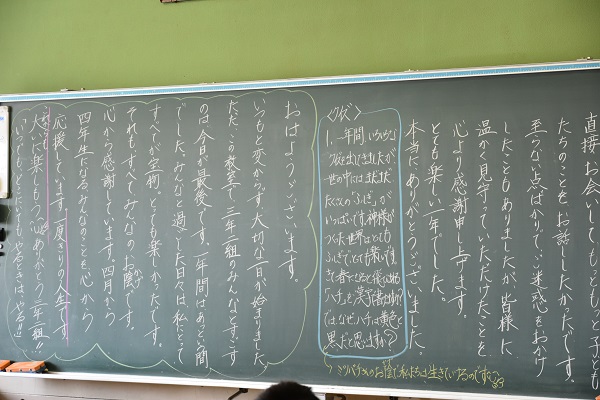 直接お会いして、もっともっと子ども
たちのことをお話ししたかったです。
至らない点ばかりで、ご迷惑をおかけ
したこともありましたが、皆様に
温かく見守っていただけたことを
心より感謝申し上げます。
とても楽しい一年でした。
本当にありがとうございました。
〈クイズ〉
1. 一年間、いろいろな
クイズを出してきましたが
世の中にはまだまだ
たくさんの「ふしぎ」が
いっぱいです。神様が
つくった世界はとても
ふしぎで、とても
では、なぜ、ハチは黄色と
黒だと思いますか？
ミツバチさんのお陰で私たちは生きているのです。
おはようございます。
いつもと変わらず大切な一日が始まりました。
ただ、この教室で三年一組のみんなとすごす
のは今日が最後です。一年間はあっという間
でした。みんなと過ごした日々は、私にとって
すべてが宝物。とても楽しかったです。
それもすべてみんなのお陰です。
かげ
心から感謝しています。四月から
四年生になるみんなのことを心から
応援しています。一度きりの人生です。
大いに楽しもう。心ありがとう三年一組!!
いつでも、どこにいても、やるときは、やる!!